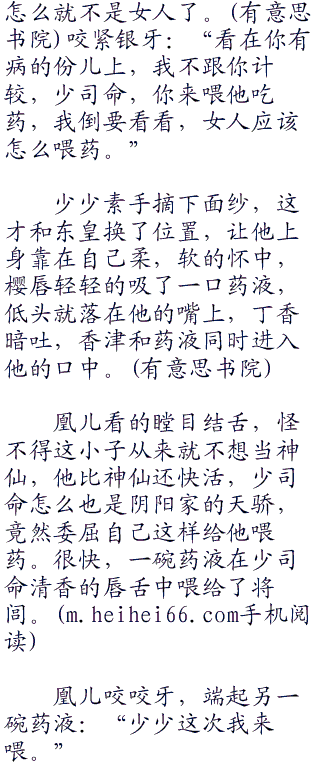 怎么就不是女人了。(有意思
书院)咬紧银牙：“看在你有
病的份儿上，我不跟你计
较，少司命，你来喂他吃
药，我倒要看看，女人应该
怎么喂药。”
少少素手摘下面纱，这
才和东皇换了位置，让他上
身靠在自己柔，软的怀中，
樱唇轻轻的吸了一口药液，
低头就落在他的嘴上，丁香
暗吐，香津和药液同时进入
他的口中。(有意思书院)
凰儿看的瞠目结舌，怪
不得这小子从来就不想当神
仙，他比神仙还快活，少司
命怎么也是阴阳家的天骄，
竟然委屈自己这样给他喂
药。很快，一碗药液在少司
命清香的唇舌中喂给了将
闾。(m.heihei66.com手机阅
读)
凰儿咬咬牙，端起另一
碗药液：“少少这次我来
喂。”